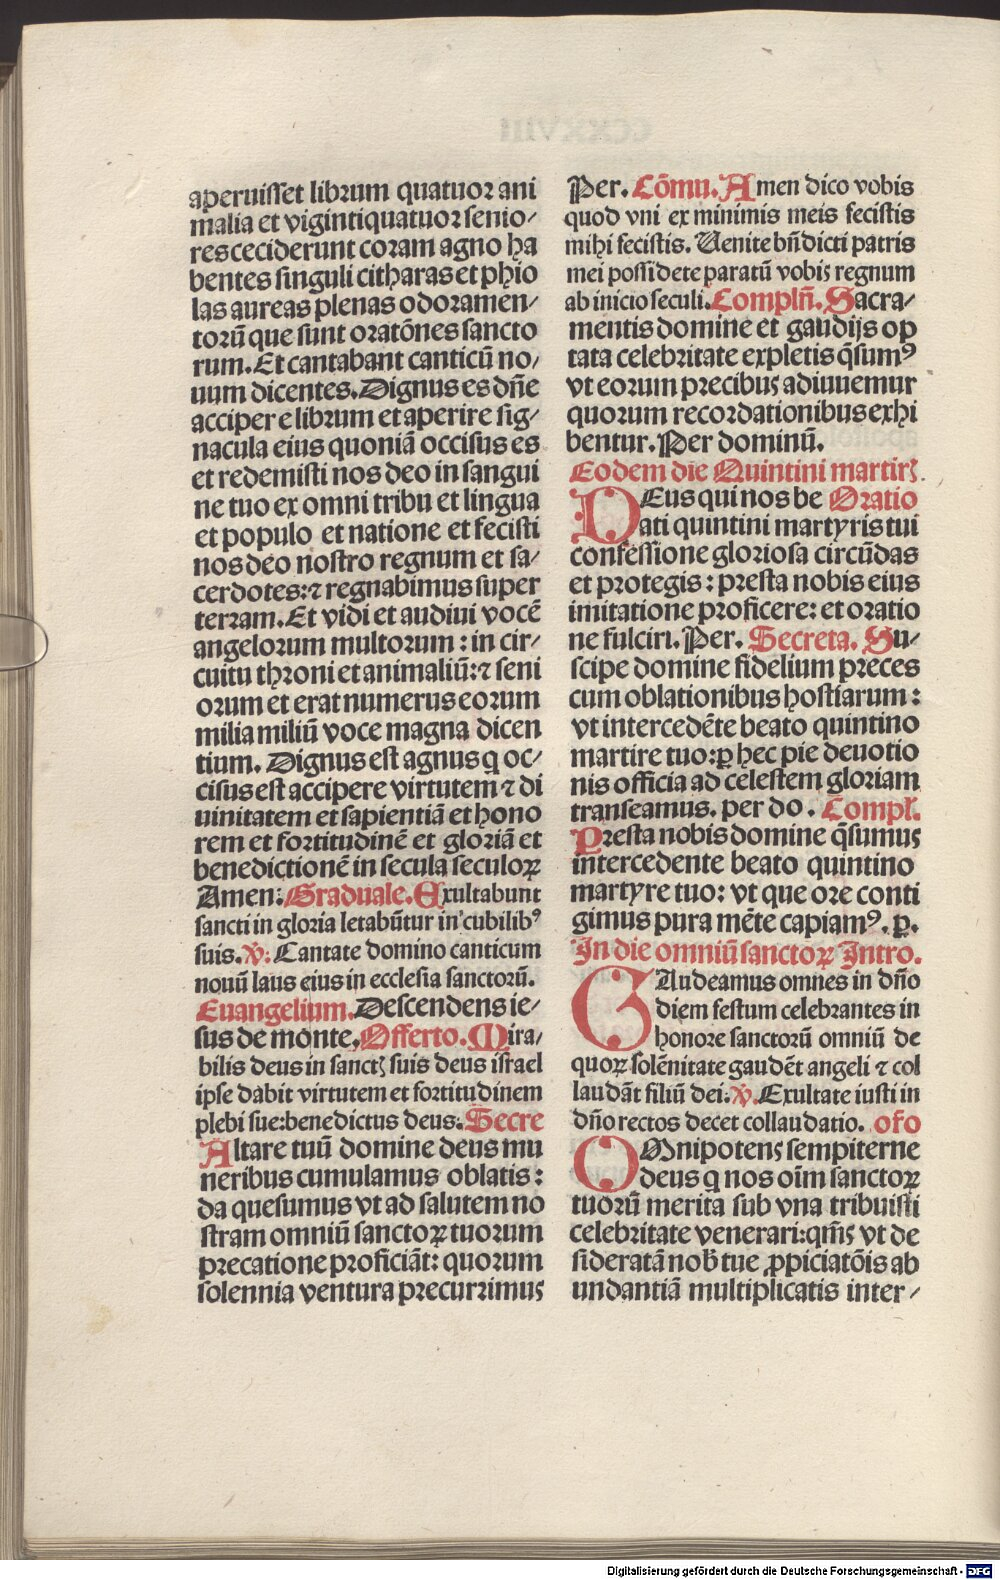 aperuisset librum quatuor ani
malia et vigintiquatuor senio/
res ceciderunt coram agno ha
bentes singuli citharas et phio
las aureas plenas odoramen/
torū que sunt oratōnes sancto
rum. Et cantabant canticū no/
uum dicentes. Dignus es dn̄e
accipere librum et aperire sig/
nacula eius quoniā occisus es
et redemisti nos deo in sangui
ne tuo ex omni tribu et lingua
et populo et natione et fecisti
nos deo nostro regnum et sa/
cerdotes: ⁊ regnabimus super
terram. Et vidi et audiui vocē
angelorum multorum: in cir/
cuitu throni et animaliū: ⁊ seni
orum et erat numerus eorum
milia miliū voce magna dicen
tium. Dignus est agnus q oc/
cisus est accipere virtutem ⁊ di
uinitatem et sapientiā et hono
rem et fortitudinē et gloriā et
benedictionē in secula seculoꝝ
Amen: Graduale. Exultabunt
sancti in gloria letabūtur in cubilibꝰ
suis. ℣: Cantate domino canticum
nouū laus eius in ecclesia sanctorū.
Euangelium. Descendens ie/
sus de monte. Offerto. Mira/
bilis deus in sanctꝭ suis deus israel
ipse dabit virtutem et fortitudinem
plebi sue: benedictus deus. Secre
Altare tuū domine deus mu
neribus cumulamus oblatis:
da quesumus vt ad salutem no
stram omniū sanctoꝝ tuorum
precatione proficiāt: quorum
solennia ventura precurrimus
Per. Cōmu. Amen dico vobis
quod vni ex minimis meis fecistis
mihi fecistis. Uenite bn̄dicti patris
mei possidete paratū vobis regnum
ab inicio seculi. Compln̄. Sacra/
mentis domine et gaudijs op
tata celebritate expletis q̄sumꝰ
vt eorum precibus adiuuemur
quorum recordationibus exhi
bentur. Per dominū.
Eodem die Quintini martirꝭ.
DEus qui nos be Oratio
ati quintini martyris tui
confessione gloriosa circūdas
et protegis: presta nobis eius
imitatione proficere: et oratio
ne fulciri. Per. Secreta. Su/
scipe domine fidelium preces
cum oblationibus hostiarum:
vt intercedēte beato quintino
martire tuo: ꝑ hec pie deuotio
nis officia ad celestem gloriam
transeamus. per do. Compl.
Presta nobis domine q̄sumus
intercedente beato quintino
martyre tuo: vt que ore conti
gimus pura mēte capiamꝰ. ꝑ.
In die omniū sanctoꝝ Intro.
GAudeamus omnes in dn̄o
diem festum celebrantes in
honore sanctorū omniū de
quoꝝ solēnitate gaudēt angeli ⁊ col
laudāt filiū dei: ℣. Exultate iusti in
dn̄o rectos decet collaudatio. oro
OMnipotens sempiterne
deus q nos oīm sanctoꝝ
tuorū merita sub vna tribuisti
celebritate venerari: qm̄s vt de
sideratā nob̄ tue ꝓpiciatōis ab
undantiā multiplicatis inter/
Digitalisierung gefördert durch die Deutsche Forschungsgemeinschaft - DFG